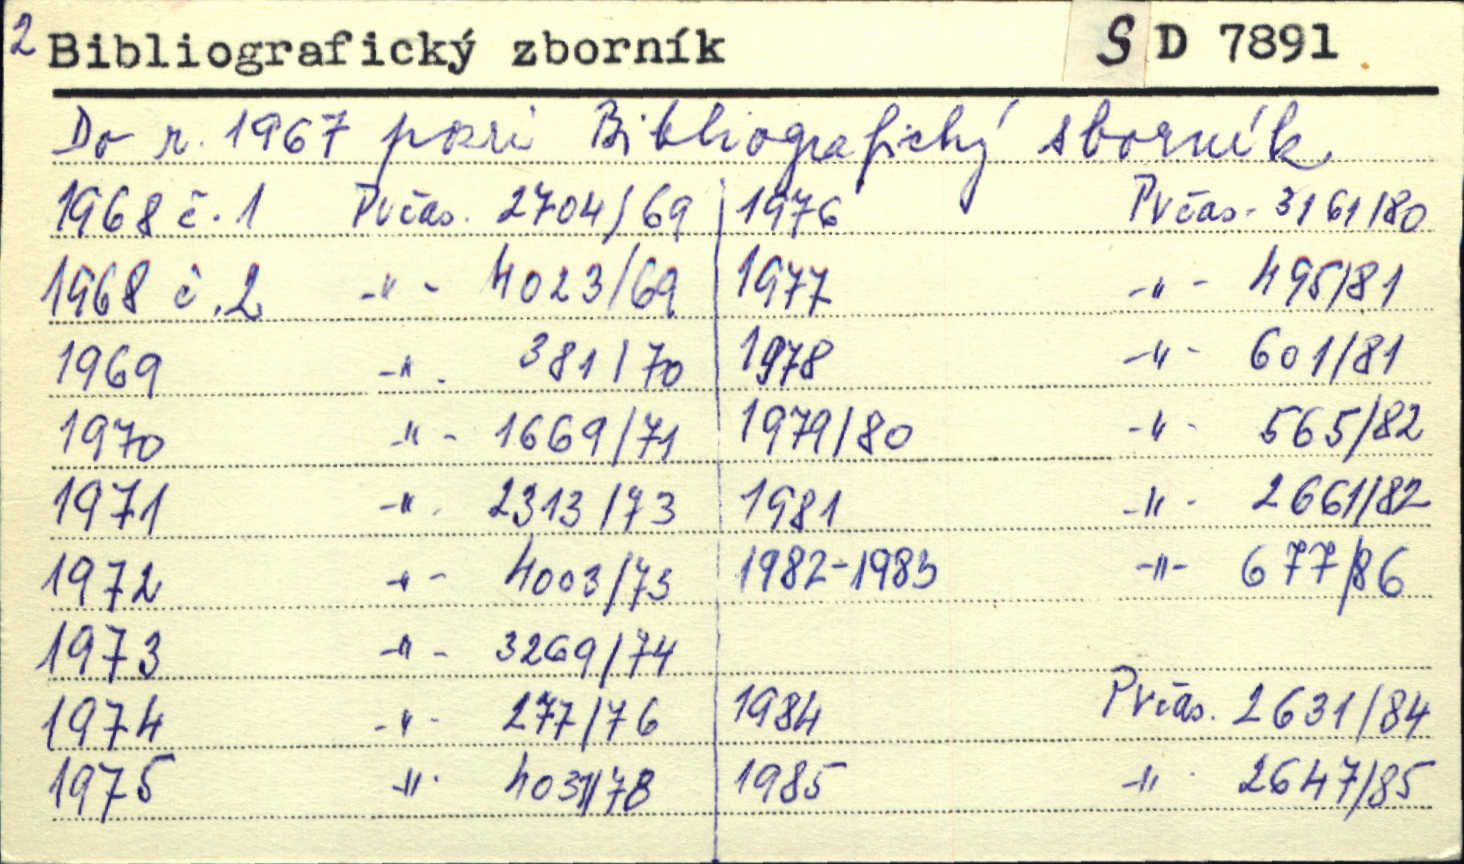 2 Bibliografický zborník S D 7891
Do r. 1967 pozri Bibliografický sborník
1968 č. 1 Prčas. 2704/69
1968 č. 2 -"- 4023/69
1969 -"- 381/70
1970 -"- 1669/71
1971 -"- 2313/73
1972 -"- 4003/73
1973 -"- 3269/74
1974 -"- 277/76
1975 -"-
1976 Prčas. 3161/80
1977 -"- 495/81
1978 -"- 601/81
1979/80 -"- 565/82
1981 -"- 2661/82
1982-1983 -"- 677/86
1984 Prčas. 2631/84
1985 -"- 2647/85